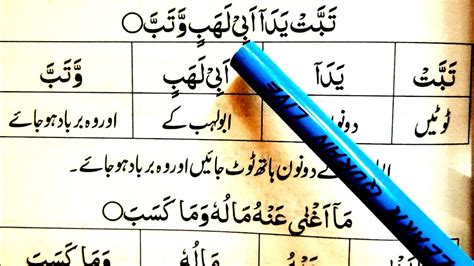 تَبَّتْ يَدَآ اَبِیْ لَهَبٍ وَّتَبَّ ○
تَبَّتْ يَدَآ اَبِیْ لَهَبٍ وَّتَبَّ
ٹوٹیں دونوں ابولہب کے اور وہ برباد ہو جائے
کے دونوں ہاتھ ٹوٹ جائیں اور وہ برباد ہو جائے۔
مَآ اَغْنٰی عَنْهُ مَالُهٗ وَمَا كَسَبَ ○
عَنْهُ مَالُهٗ وَمَا كَسَبَ
QURAN LIVE